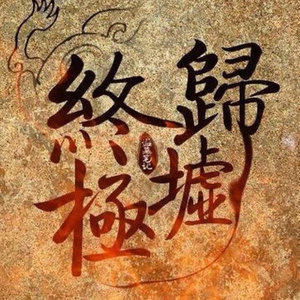 歸墟
終極